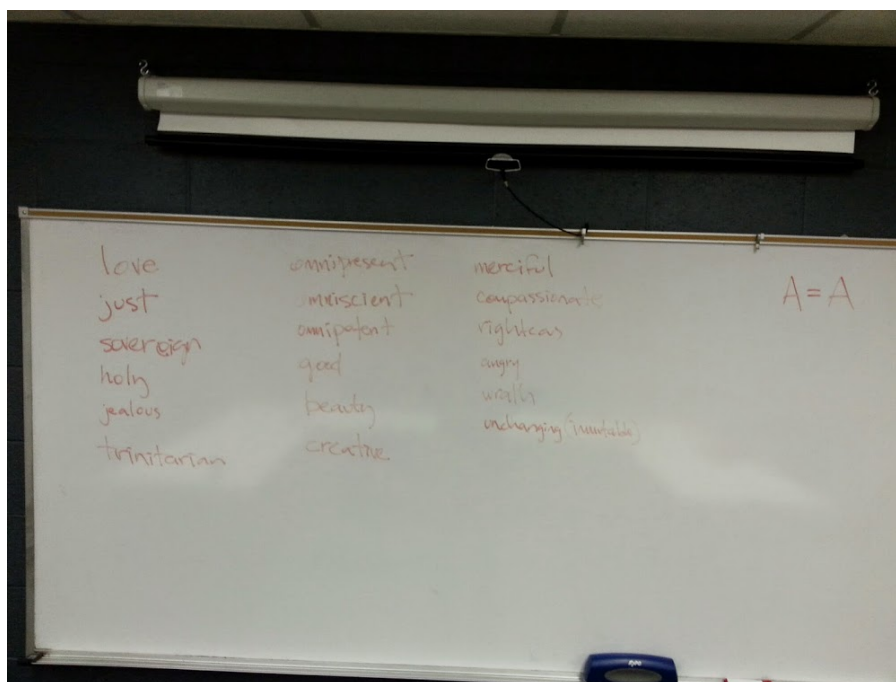 love
just
sovereign
holy
jealous
trinitarian
omnipresent
omniscient
omnipotent
good
beauty
creative
merciful
compassionate
righteous
angry
wrath
unchanging (immutable)
A = A
expo